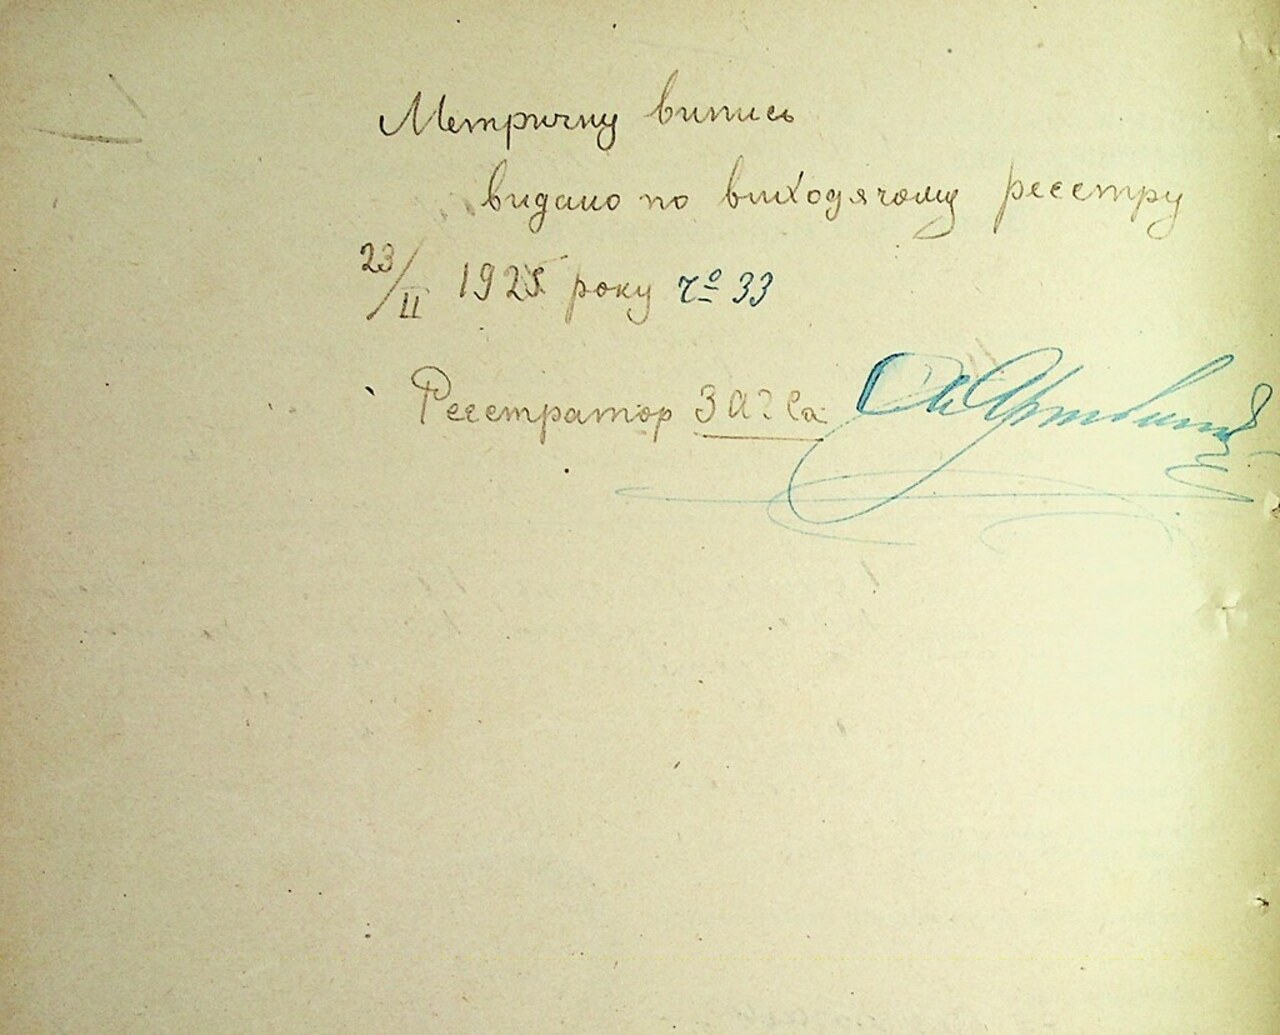 Метричну випись
видано по виходячому реєстру
23/II 1925 року ч⁰ 33
Реєстратор ЗАГСа